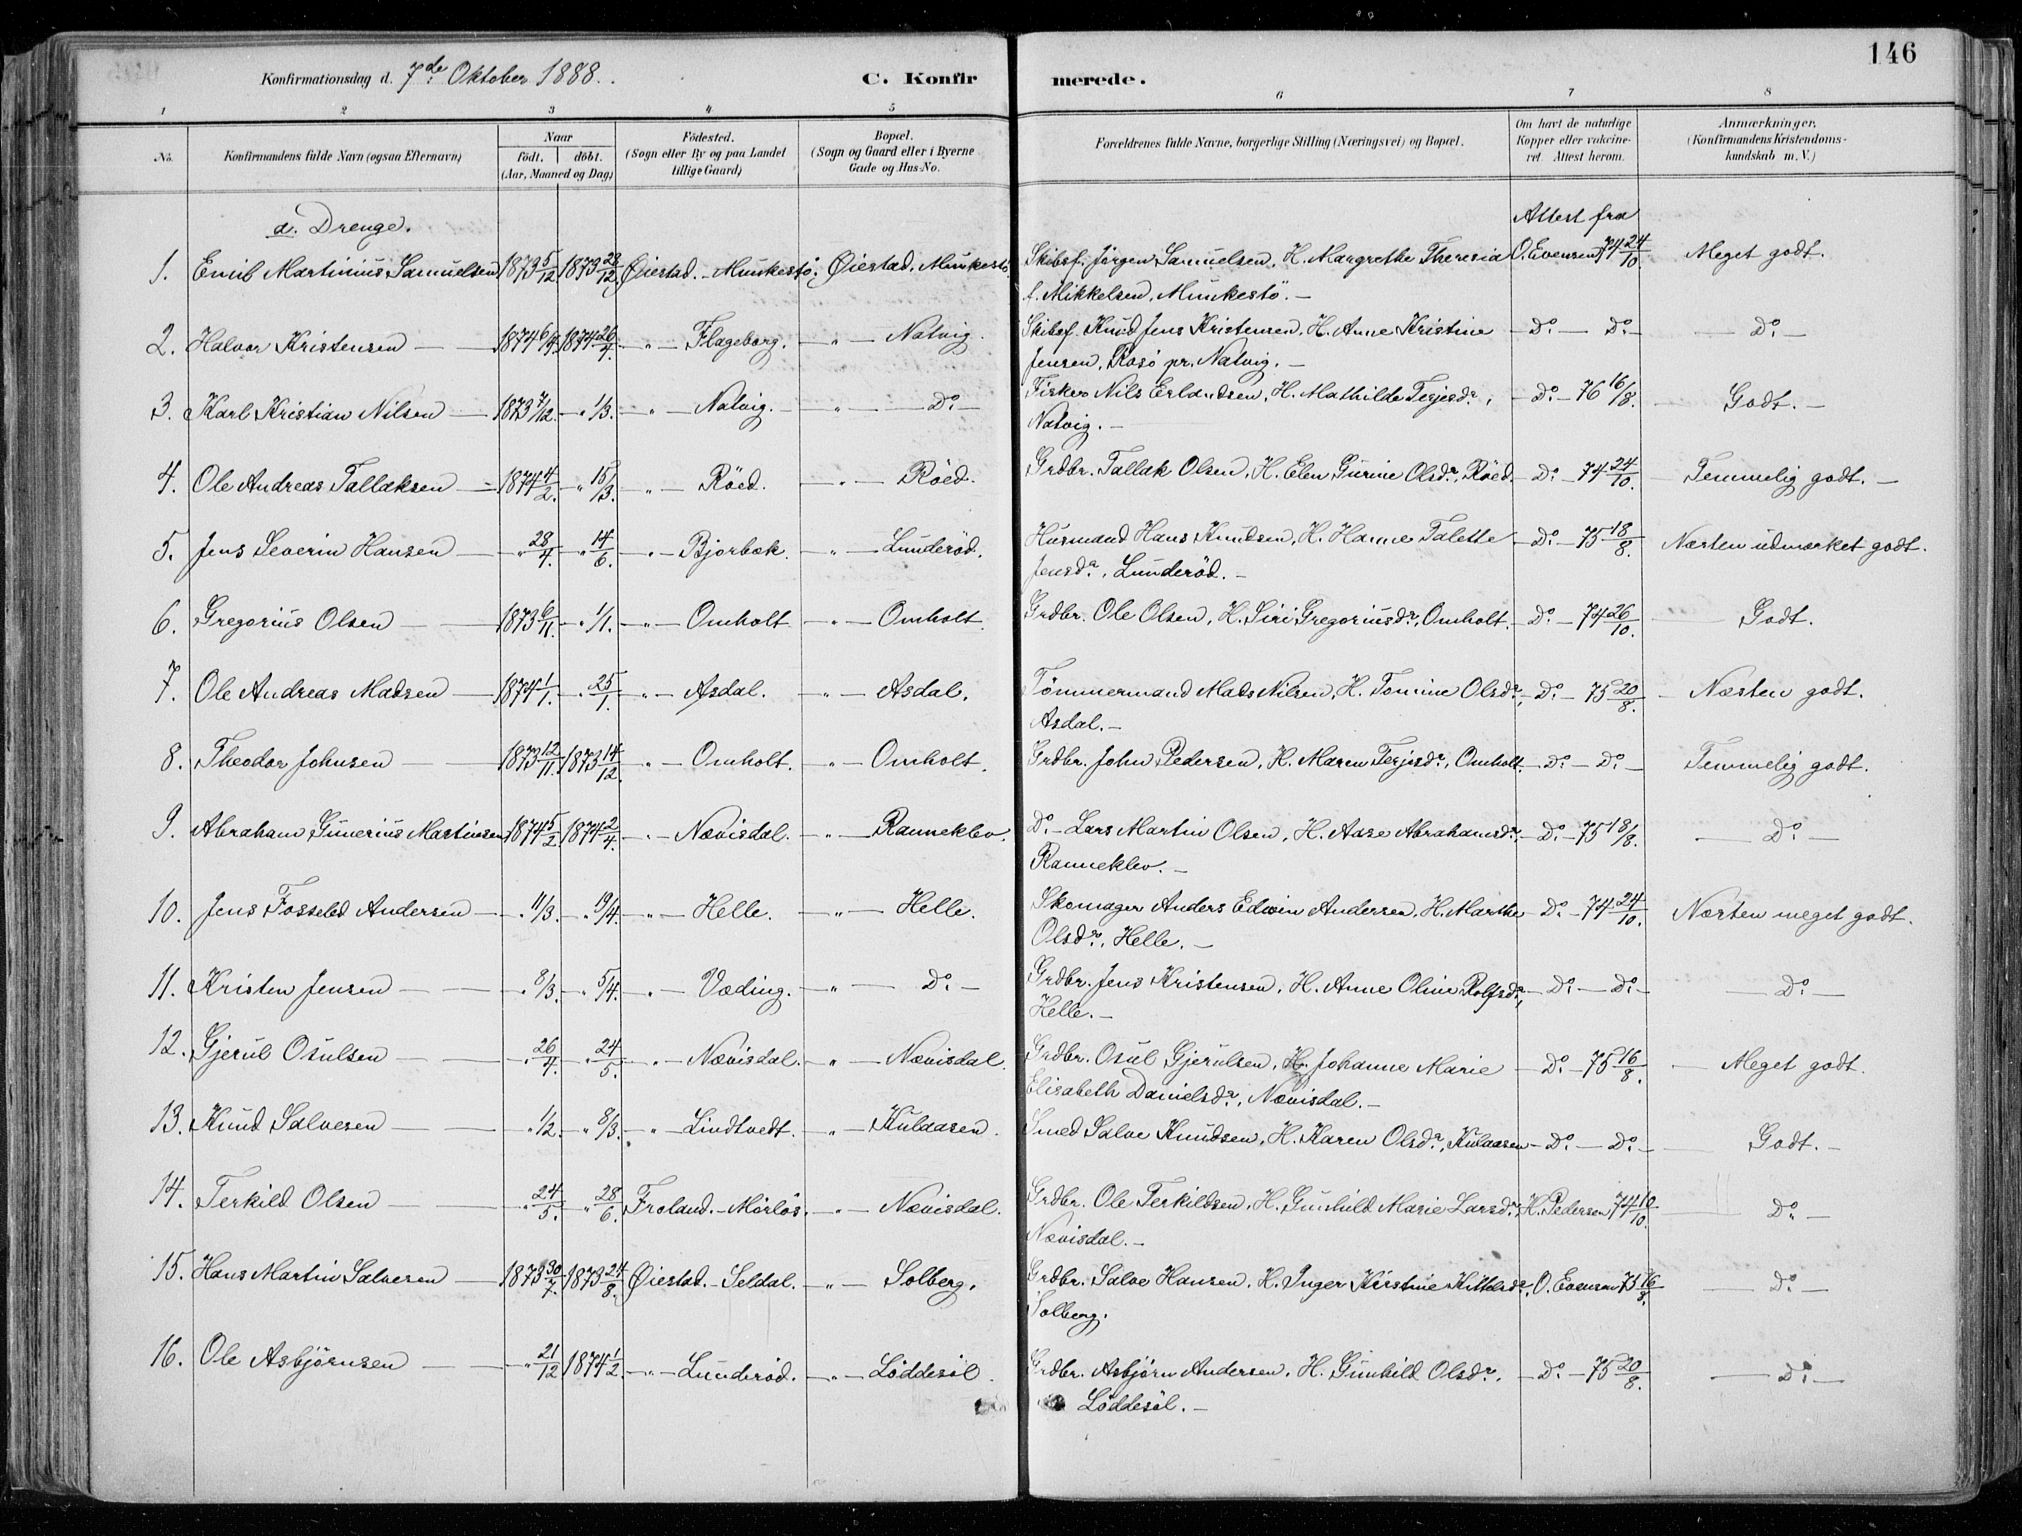 146
Konfirmationsdag d. 7de Oktober 1888. C. Konfirmerede.
1 2 3 4 5 6 7 8
No. Konfirmandens fulde Navn (ogsaa Efternavn) Naar født. døbt. (Aar, Maaned og Dag) Fødested. (Sogn eller By og paa Landet tillige Gaard) Bopæl. (Sogn og Gaard eller i Byerne Gade og Hus-No. Forældrenes fulde Navne, borgerlige Stilling (Næringsvei) og Bopæl. Om havt de naturlige Kopper eller vakcineret. Attest herom. Anmærkninger. (Konfirmandens Kristendomskundskab m. V.)
a. Drenge. Attest fra
1. Emil Martinius Samuelsen 1873 5/12 1873 28/12 Øiestad. - Munkestø. Øiestad. Munkestø Skibsf. Jørgen Samuelsen, H. Margrethe Theresia O. Evensen 74 24/10. Meget godt.
f. Mikkelsen, Munkestø. —
2. Halvor Kristensen — 1874 6/4. 1874 26/4. — " — Flageborg. — " — Natvig. Skibsf. Knud Jens Kristensen, H. Anne Kristine — Do. — Do. — — Do. —
Jensen, Rosø pr. Natvig. —
3. Karl Kristian Nilsen — 1873 7/12. — " 1/3. — " — Natvig. — — " — Do. — Fisker Nils Erlandsen, H. Mathilde Terjesdr, — Do. — 76 16/8. — Godt. —
Natvig. —
4. Ole Andreas Tallaksen — 1874 4/2. — " 15/3. — " — Röed. — " — Röed. Grdbr. Tallak Olsen, H. Elen Gurine Olsdr, Röed. — Do. — 74 24/10. — Temmelig godt. —
5. Jens Severin Hansen — " 28/4. — " 14/6. — " — Bjorbæk. — " — Lunderød. Husmand Hans Knudsen, H. Hanne Talette — Do. — 75 18/8. Næsten udmærket godt.
Jensdr, Lunderød. —
6. Gregorius Olsen — 1873 6/11. — " 1/1. — " — Omholt — " — Omholt. Grdbr. Ole Olsen, H. Siri Gregoriusdr, Omholt. — Do. — 74 26/10. — Godt.
7. Ole Andreas Madsen — 1874 1/1. — " 25/1. — " — Asdal. — " — Asdal. Tømmermand Mads Nilsen, H. Tomine Olsdr, — Do. — 75 20/8. — Næsten godt.
Asdal. —
8. Theodor Johnsen — 1873 12/11. 1873 14/12. — " — Omholt. — " — Omholt. Grdbr. John Pedersen, H. Maren Terjesdr, Omholt. — Do. — Do. — Temmelig godt.
9. Abraham Gunerius Martinsen 1874 5/2. 1874 2/4. — " — Nævisdal. — " — Ranneklev. Do. — Lars Martin Olsen, H. Aase Abrahamsdr, — Do. — 75 18/8. — Do. —
Ranneklev. —
10. Jens Andersen — " 11/3. — " 19/4. — " — Helle. — " — Helle. Skomager Anders Edwin Andersen, H. Marthe — Do. — 74 24/10. Næsten meget godt.
Olsdr, Helle. —
11. Kristen Jensen — " 8/3. — " 5/4. — " — Væding. — " — Do. — Grdbr. Jens Kristensen, H. Anne Oline Rolfsdr, — Do. — Do. — — Do. —
Helle. —
12. Gjerul Osulsen — " 26/4. — " 24/5. — " — Nævisdal. — " — Nævisdal. Grdbr. Osul Gjerulsen, H. Johanne Marie — Do. — 75 16/8. — Meget godt.
Elisabeth Danielsdr, Nævisdal. —
13. Knud Salvesen — " 1/2. — " 8/3. — " — Lindtvedt. — " — Kulaasen. Smed Salve Knudsen, H. Karen Olsdr, Kulaasen — Do. — Do. — — Godt. —
14. Terkild Olsen — " 24/5. — " 28/6. Froland. - Mörlös. — " — Nævisdal. Grdbr. Ole Terkildsen, H. Gunhild Marie Larsdr, H. Pedersen 74 10/10. — Do. —
Nævisdal. —
15. Hans Martin Salvesen — 1873 30/7. 1873 24/8. Øiestad. - Seldal. — " — Solberg. Grdbr. Salve Hansen, H. Inger Kirstine Kittelsdr, O. Evensen 75 16/8. — Do. —
Solberg.
16. Ole Asbjørnsen — " 21/12 1874 1/2. — " — Lunderød. — " — Løddesøl. Grdbr. Asbjørn Andersen, H. Gunhild Olsdr, — Do. — 75 20/8. — Do. —
Løddesøl. —